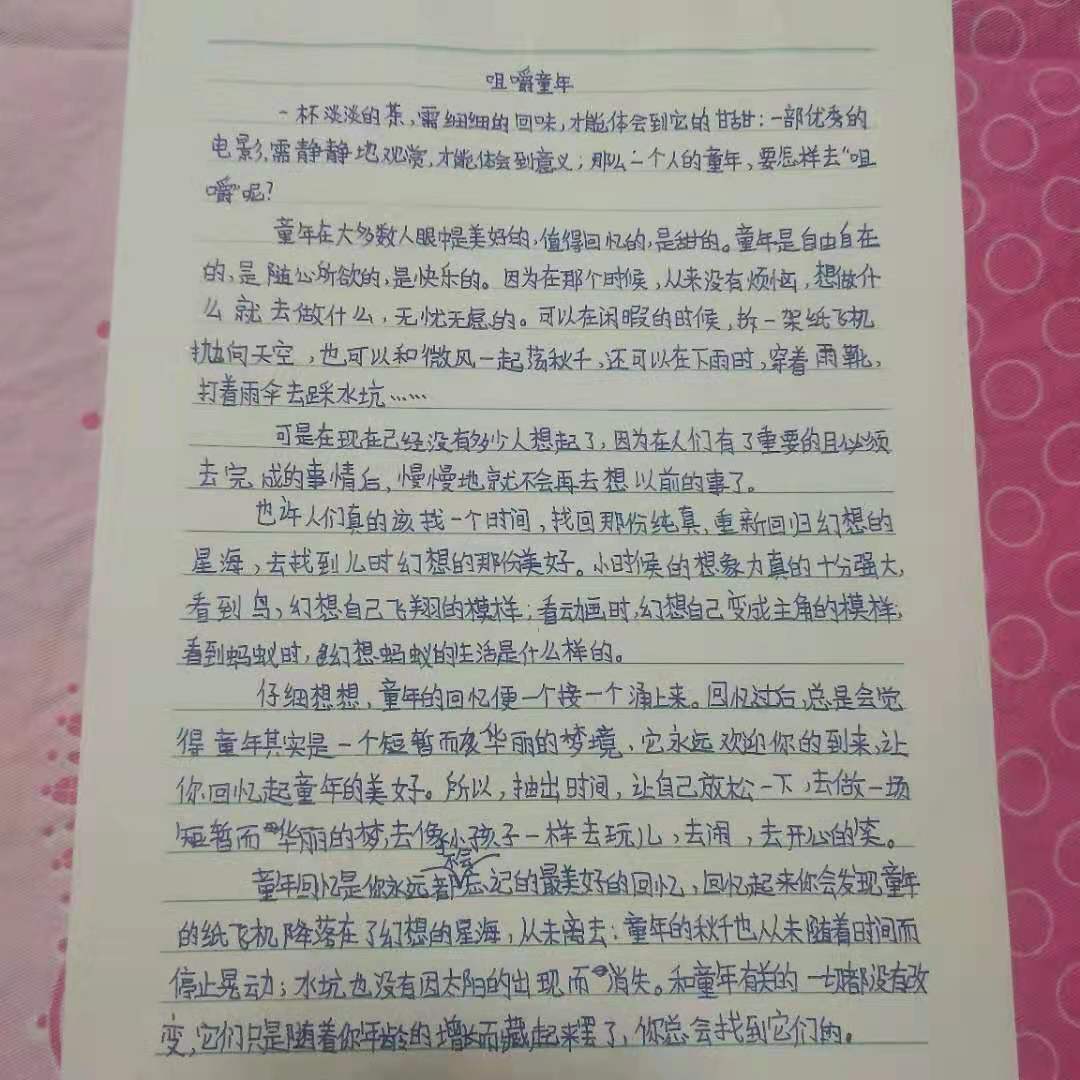 咀嚼童年
一杯淡淡的茶，需细细的回味，才能体会到它的甘甜：一部优秀的
电影，需静静地观赏，才能体会到意义；那么一个人的童年，要怎样去“咀
嚼”呢？
童年在大多数人眼中是美好的，值得回忆的，是甜的。童年是自由自在
的，是随心所欲的，是快乐的。因为在那个时候，从来没有烦恼，想做什
么就去做什么，无忧无虑的。可以在闲暇的时候，拆一架纸飞机
抛向天空，也可以和微风一起荡秋千，还可以在下雨时，穿着雨靴，
打着雨伞去踩水坑……
可是在现在已经没有多少人想起了，因为在人们有了重要的且必须
去完成的事情后，慢慢地就不会再去想以前的事了。
也许人们真的该找一个时间，找回那份纯真，重新回归幻想的
星海，去找到儿时幻想的那份美好。小时候的想象力真的十分强大，
看到鸟，幻想自己飞翔的模样；看动画时，幻想自己变成主角的模样；
看到蚂蚁时，幻想蚂蚁的生活是什么样的。
仔细想想，童年的回忆便一个接一个涌上来。回忆过后，总是会觉
得童年其实是一个短暂而华丽的梦境，它永远欢迎你的到来，让
你回忆起童年的美好。所以，抽出时间，让自己放松一下，去做一场
短暂而华丽的梦，去像小孩子一样去玩儿，去闹，去开心的笑。
童年回忆是你永远都不会忘记的最美好的回忆，回忆起来你会发现童年
的纸飞机降落在了幻想的星海，从未离去；童年的秋千也从未随着时间而
停止晃动；水坑也没有因太阳的出现而消失。和童年有关的一切都没有改
变，它们只是随着你年龄的增长而藏起来罢了，你总会找到它们的。